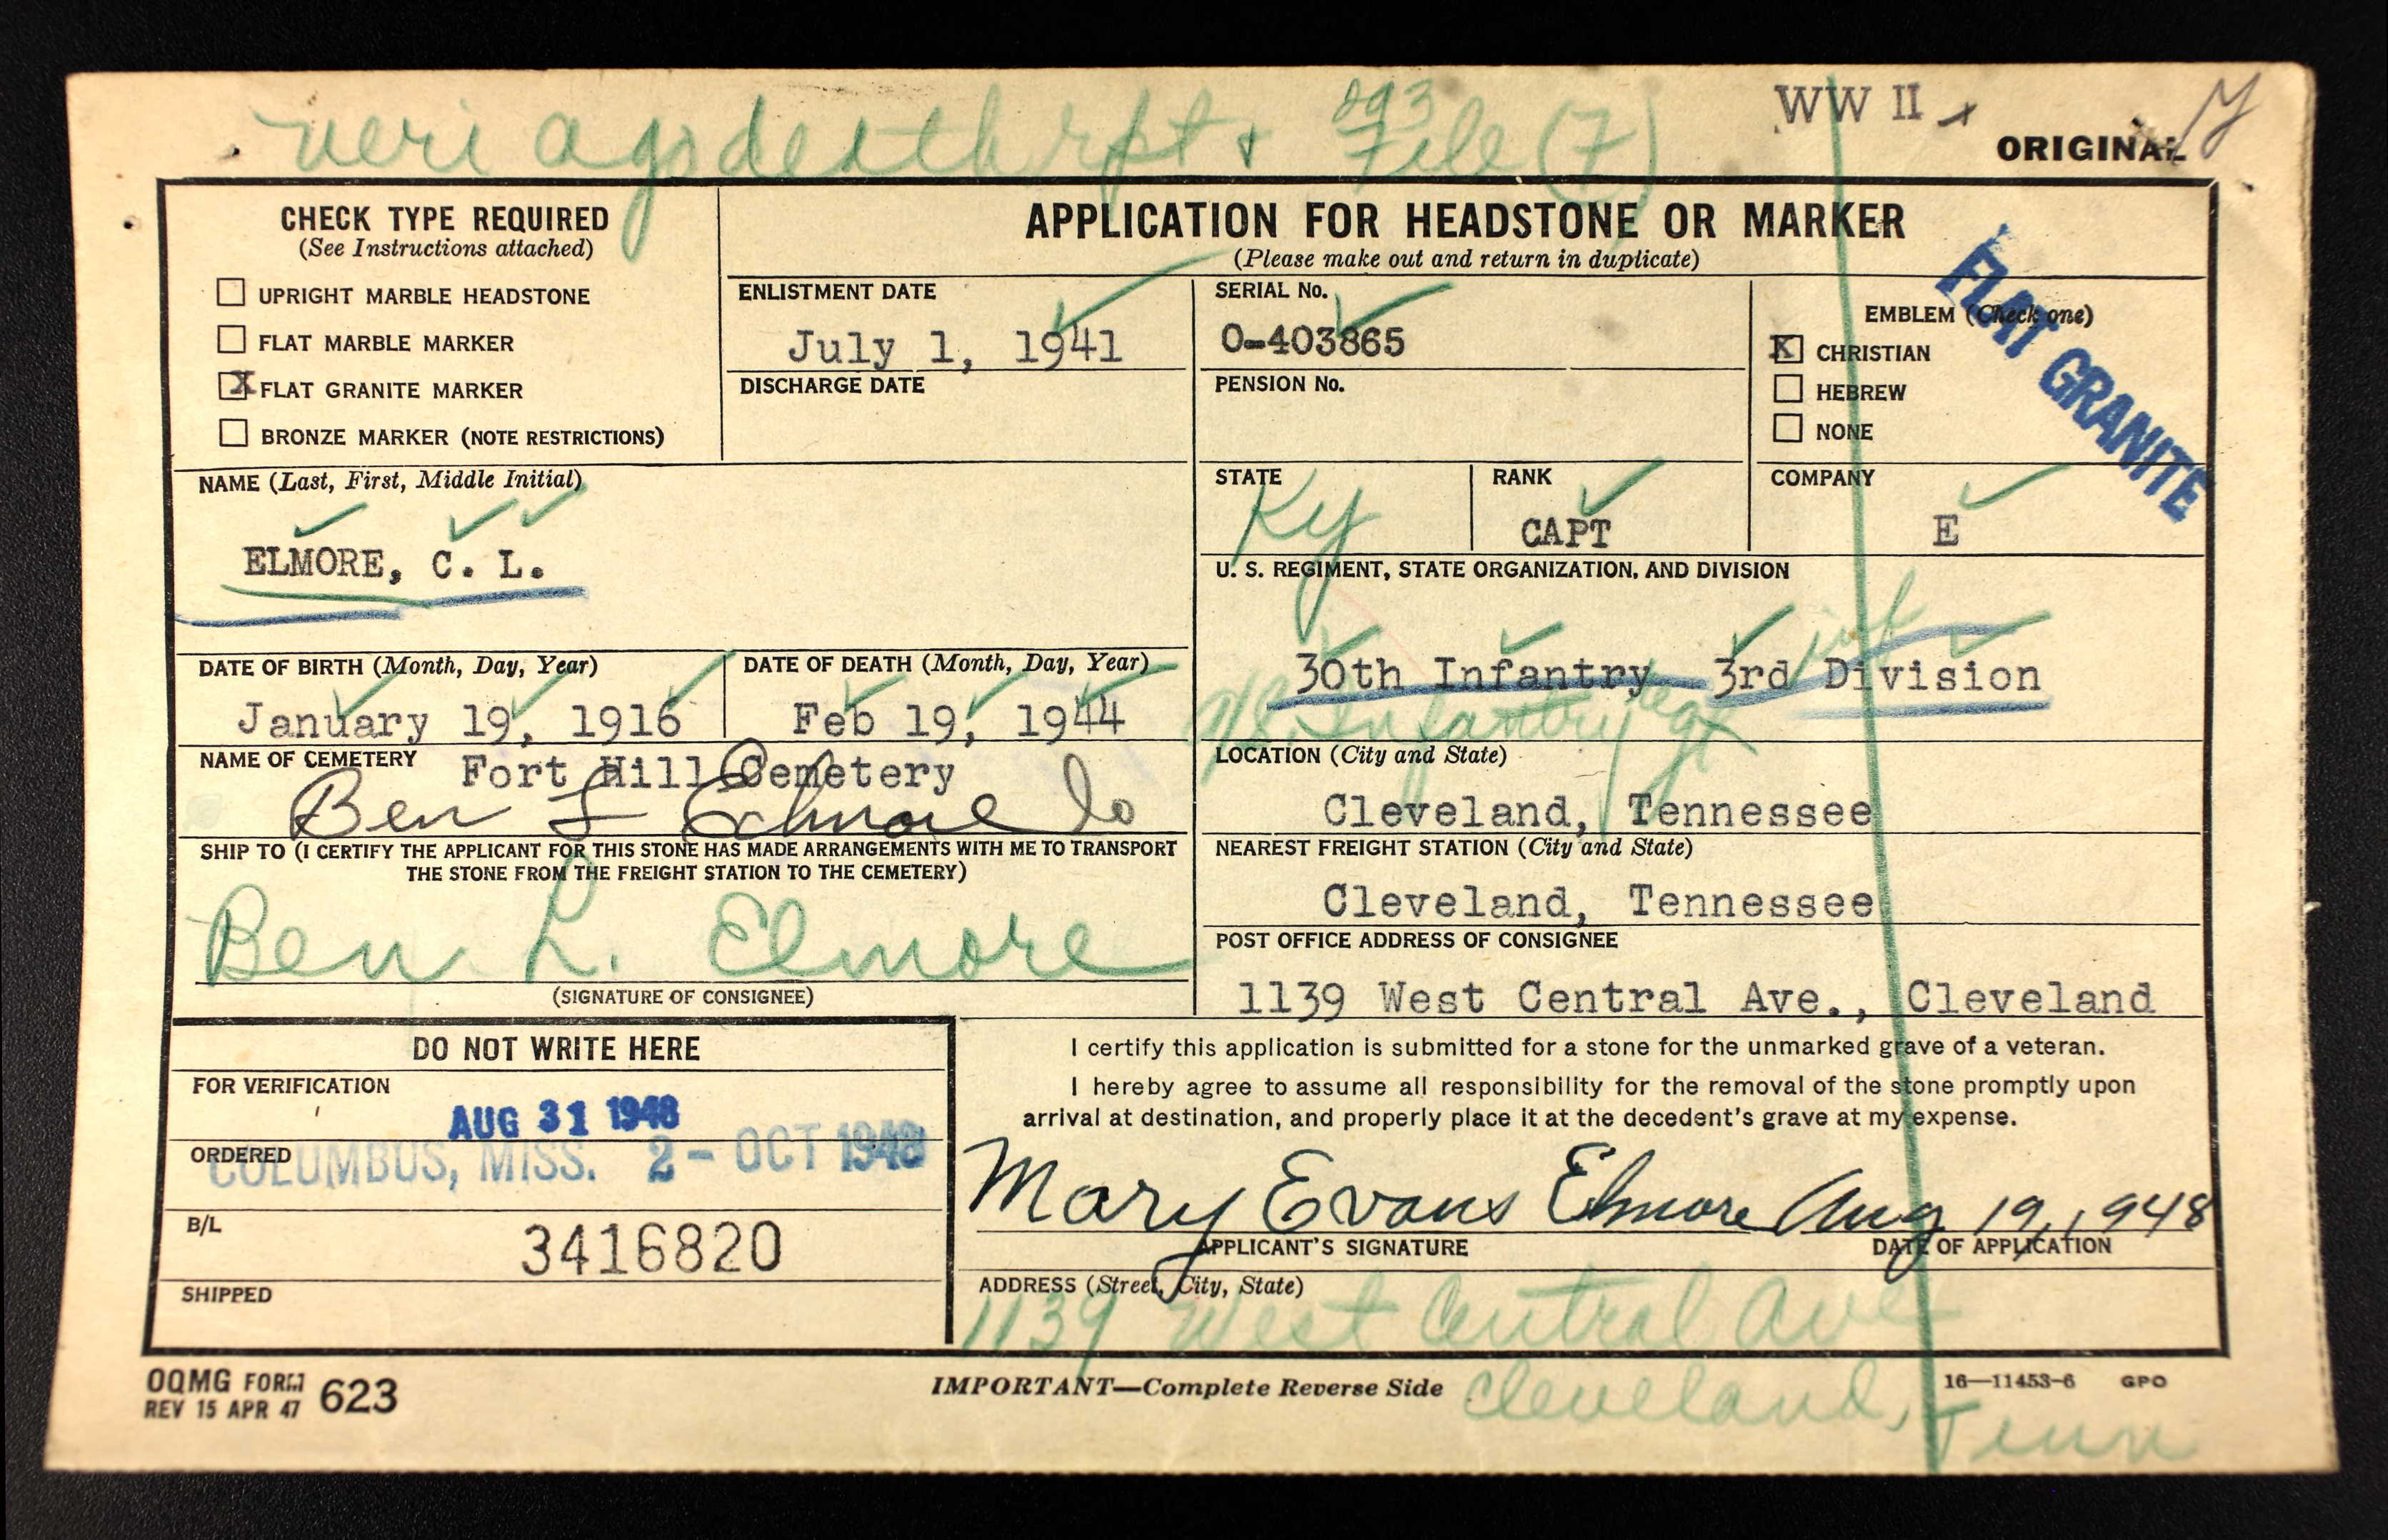 veri ago death rpt & 293 File (7)
WW II
ORIGINAL
CHECK TYPE REQUIRED
(See Instructions attached)
☐ UPRIGHT MARBLE HEADSTONE
☐ FLAT MARBLE MARKER
☒ FLAT GRANITE MARKER
☐ BRONZE MARKER (NOTE RESTRICTIONS)
APPLICATION FOR HEADSTONE OR MARKER
(Please make out and return in duplicate)
ENLISTMENT DATE
July 1, 1941
DISCHARGE DATE
SERIAL No.
O-403865
PENSION No.
EMBLEM (Check one)
☒ CHRISTIAN
☐ HEBREW
☐ NONE
FLAT GRANITE
NAME (Last, First, Middle Initial)
ELMORE, C. L.
STATE
Ky
RANK
CAPT
COMPANY
E
U. S. REGIMENT, STATE ORGANIZATION, AND DIVISION
inf
30th Infantry 3rd Division
Infantry regt
DATE OF BIRTH (Month, Day, Year)
January 19, 1916
DATE OF DEATH (Month, Day, Year)
Feb 19, 1944
NAME OF CEMETERY
Fort Hill Cemetery
LOCATION (City and State)
Cleveland, Tennessee
Ben L Elmore
SHIP TO (I CERTIFY THE APPLICANT FOR THIS STONE HAS MADE ARRANGEMENTS WITH ME TO TRANSPORT
THE STONE FROM THE FREIGHT STATION TO THE CEMETERY)
Ben L. Elmore
(SIGNATURE OF CONSIGNEE)
NEAREST FREIGHT STATION (City and State)
Cleveland, Tennessee
POST OFFICE ADDRESS OF CONSIGNEE
1139 West Central Ave., Cleveland
DO NOT WRITE HERE
FOR VERIFICATION
AUG 31 1948
ORDERED
COLUMBUS, MISS. 2 - OCT 1948
B/L
3416820
SHIPPED
I certify this application is submitted for a stone for the unmarked grave of a veteran.
I hereby agree to assume all responsibility for the removal of the stone promptly upon
arrival at destination, and properly place it at the decedent's grave at my expense.
Mary Evans Elmore Aug 19, 1948
APPLICANT'S SIGNATURE
DATE OF APPLICATION
ADDRESS (Street, City, State)
1139 West Central Ave
Cleveland, Tenn
OQMG FORM 623
REV 15 APR 47
IMPORTANT—Complete Reverse Side
16—11453-6 GPO